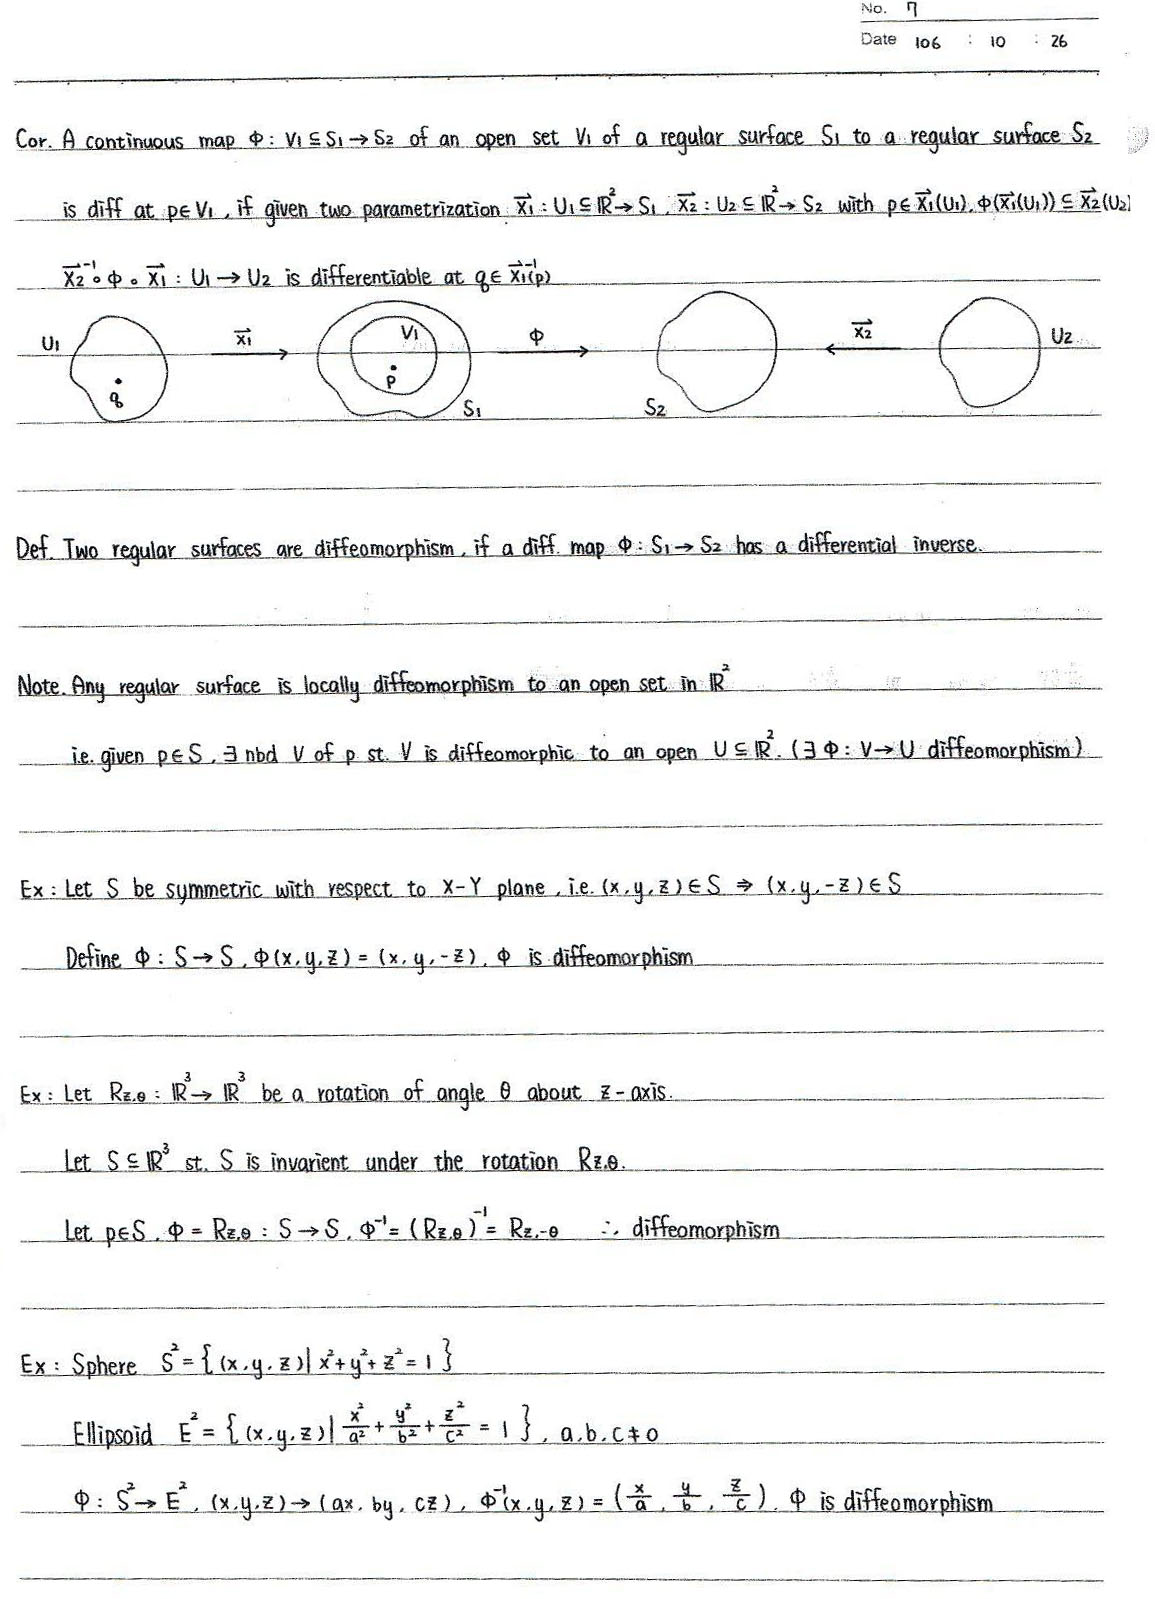 No. 7
Date 106 : 10 : 26
Cor. A continuous map Φ : V₁ ⊆ S₁ → S₂ of an open set V₁ of a regular surface S₁ to a regular surface S₂
is diff at p ∈ V₁, if given two parametrization x⃗₁ : U₁ ⊆ ℝ² → S₁, x⃗₂ : U₂ ⊆ ℝ² → S₂ with p ∈ x⃗₁(U₁), Φ(x⃗₁(U₁)) ⊆ x⃗₂(U₂)
x⃗₂⁻¹ ∘ Φ ∘ x⃗₁ : U₁ → U₂ is differentiable at q ∈ x⃗₁⁻¹(p)
U₁ q x⃗₁ V₁ p S₁ Φ S₂ x⃗₂ U₂
Def. Two regular surfaces are diffeomorphism, if a diff. map Φ : S₁ → S₂ has a differential inverse.
Note. Any regular surface is locally diffeomorphism to an open set in ℝ²
i.e. given p ∈ S, ∃ nbd V of p st. V is diffeomorphic to an open U ⊆ ℝ². (∃ Φ : V → U diffeomorphism)
Ex : Let S be symmetric with respect to X-Y plane, i.e. (x, y, z) ∈ S ⇒ (x, y, -z) ∈ S
Define Φ : S → S, Φ(x, y, z) = (x, y, -z), Φ is diffeomorphism
Ex : Let R_{z,θ} : ℝ³ → ℝ³ be a rotation of angle θ about z-axis.
Let S ⊆ ℝ³ st. S is invarient under the rotation R_{z,θ}.
Let p ∈ S, Φ = R_{z,θ} : S → S, Φ⁻¹ = (R_{z,θ})⁻¹ = R_{z,-θ} ∴ diffeomorphism
Ex : Sphere S² = { (x, y, z) | x² + y² + z² = 1 }
Ellipsoid E² = { (x, y, z) | x²/a² + y²/b² + z²/c² = 1 }, a, b, c ≠ 0
Φ : S² → E², (x, y, z) → (ax, by, cz), Φ⁻¹(x, y, z) = (x/a, y/b, z/c), Φ is diffeomorphism